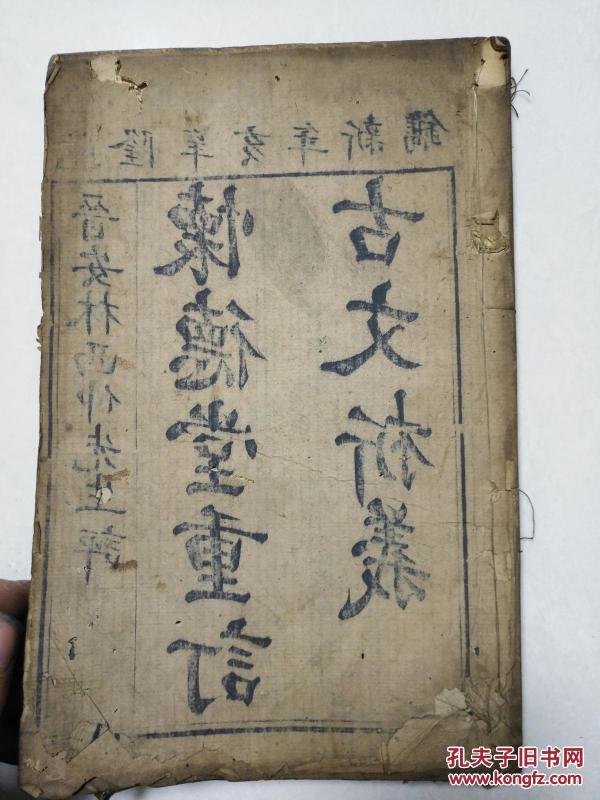 隆辛亥年新鐫
晉安林西仲先生評
懷德堂重訂
古文析義
孔夫子旧书网
www.kongfz.com